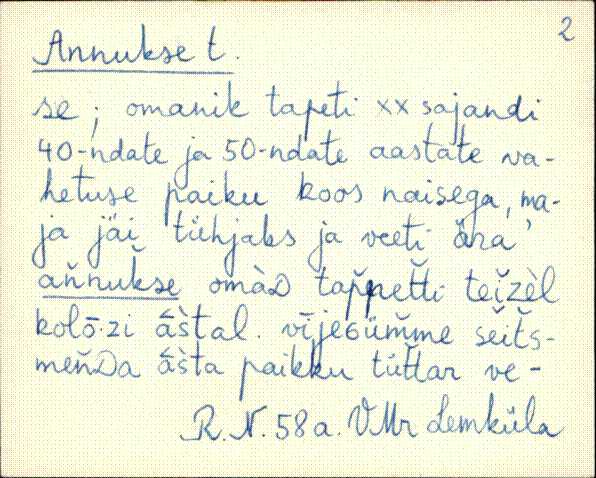 2
Annukse t.
se; omanik tapeti XX sajandi
40-ndate ja 50-ndate aastate va-
hetuse paiku koos naisega, ma-
ja jäi tühjaks ja veeti ära
ańnukse omàD tap̆peťti teĭzèl
kolō·zi áštal. vīje6üm̆me seits-
meńDa ášta paikku tüťtar ve-
R.N. 58 a. VMr Lemküla